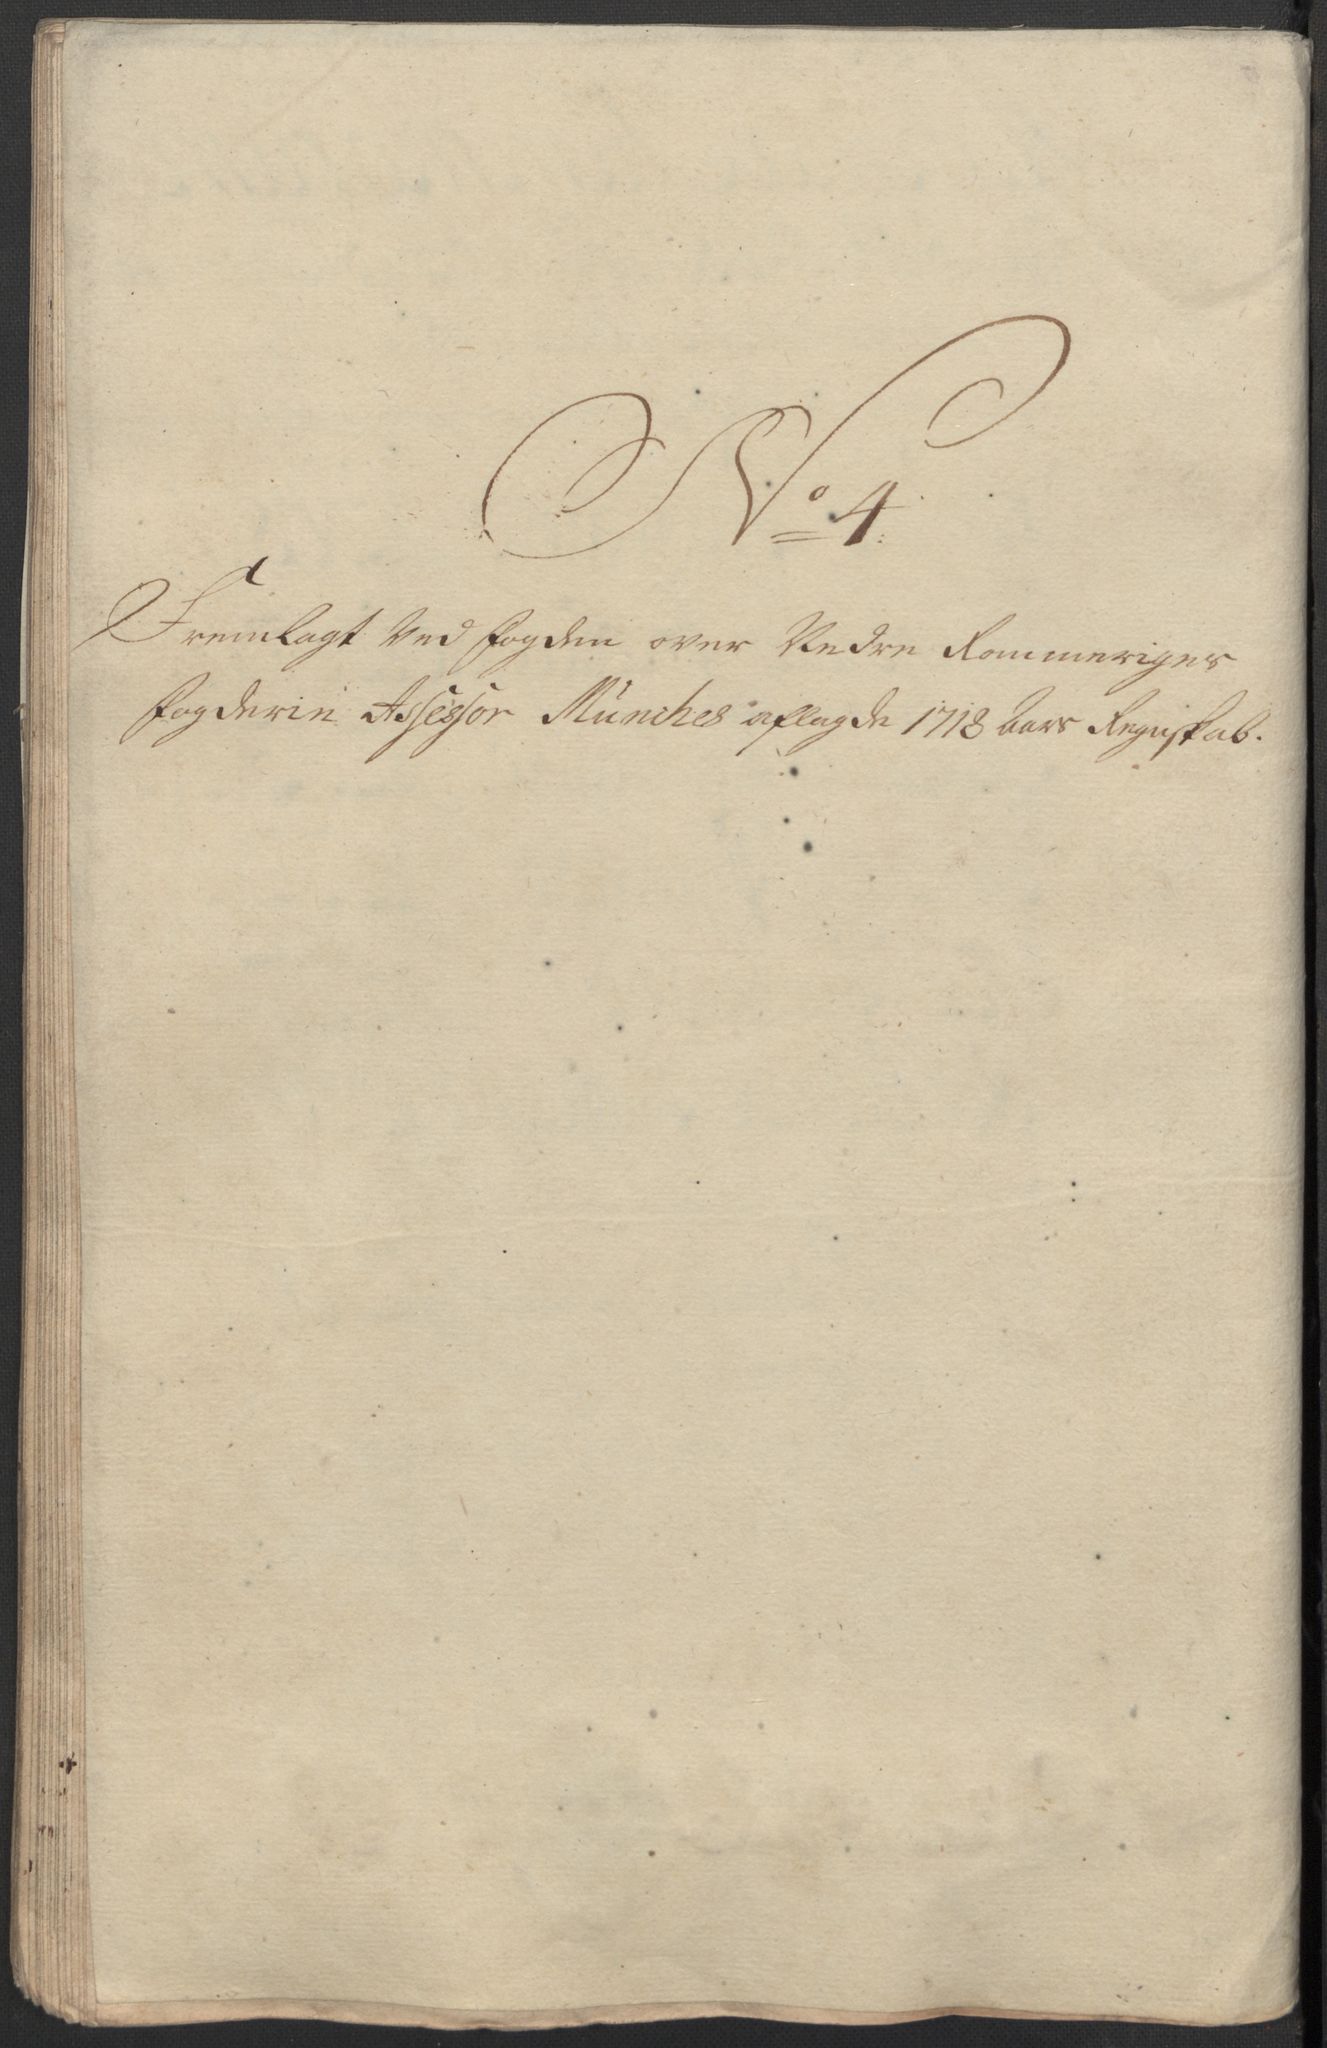 No 4.
Fremlagt Ved fogden over Nedre Rommeriges
fogderie Assessor Münches aflagde 1718 aars Regnskab.